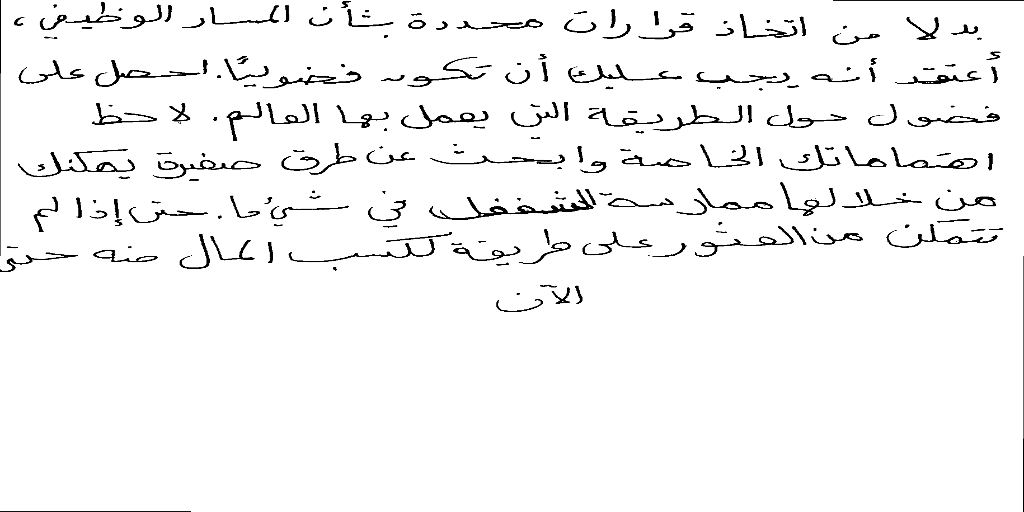 بدلا من اتخاذ قرارات محددة بشأن المسار الوظيفي ،
أعتقد أنه يجب عليك أن تكون فضوليًا. احصل على
فضول حول الطريقة التي يعمل بها العالم. لاحظ
اهتماماتك الخاصة وابحث عن طرق صغيرة يمكنك
من خلالها ممارسة الشغف في شيء ما. حتى إذا لم
تتمكن من العثور على طريقة لكسب المال منه حتى
الآن